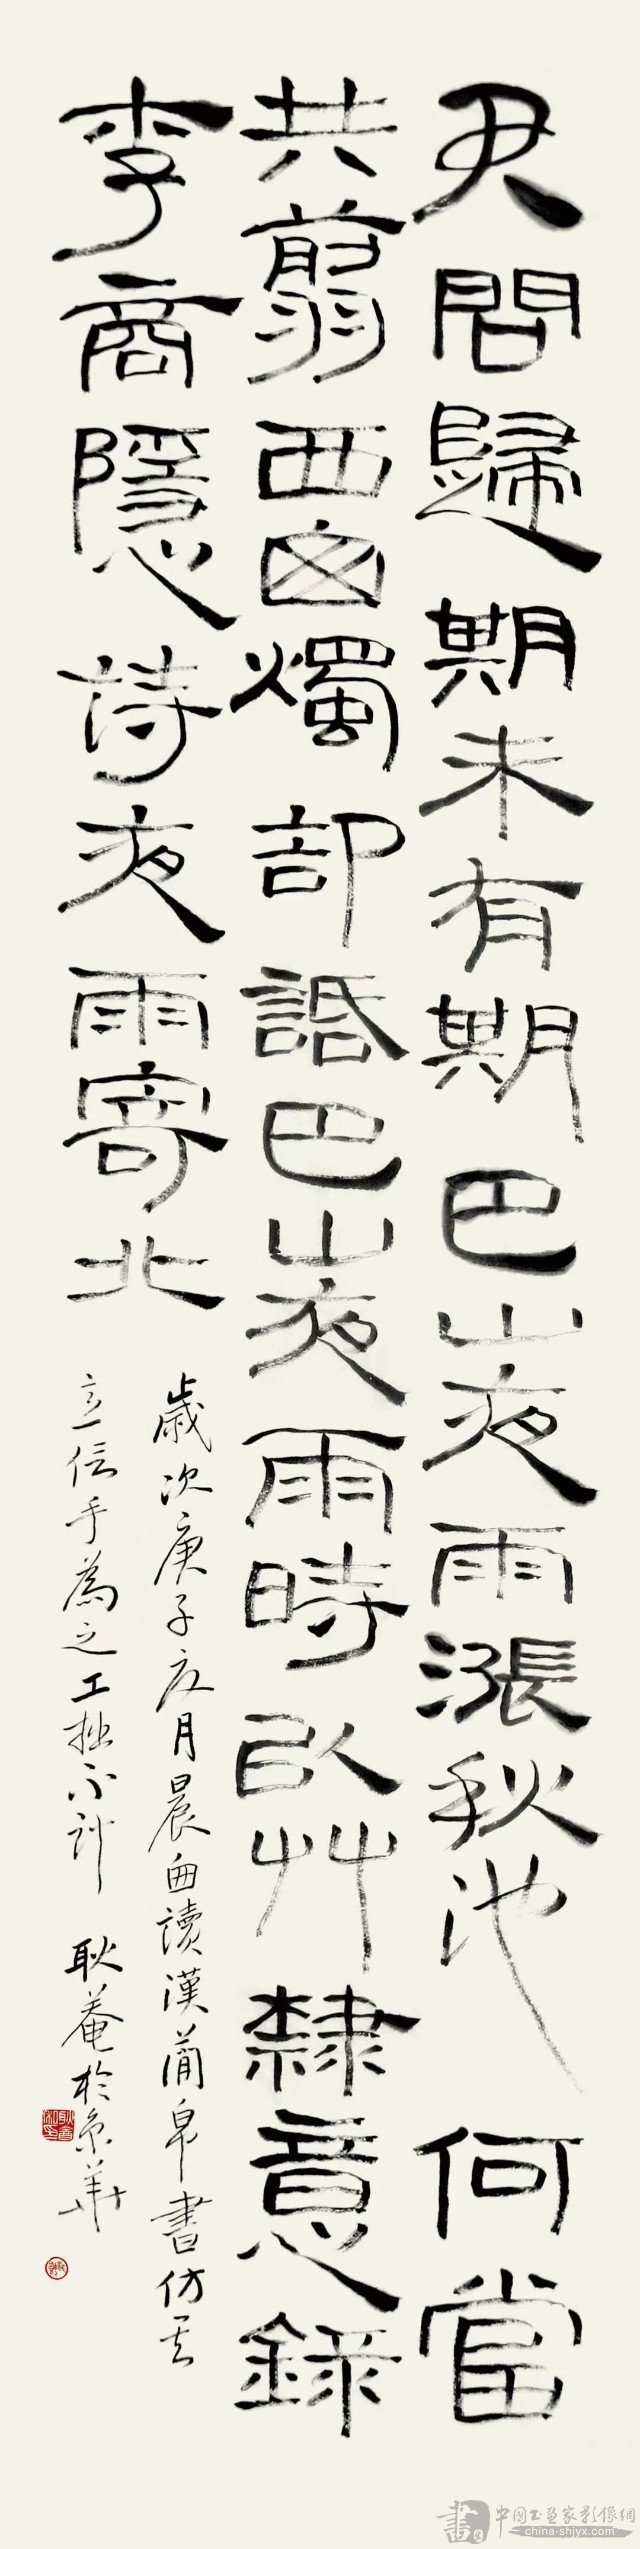 君問歸期未有期巴山夜雨漲秋池何當
共翦西窗燭卻話巴山夜雨時以艸隸意錄
李商隱詩夜雨寄北
歲次庚子夏月晨窗讀漢簡帛書仿其
意信手為之工拙不計 耿菴於京華
書 中國书画家影像網
china-shjyx.com